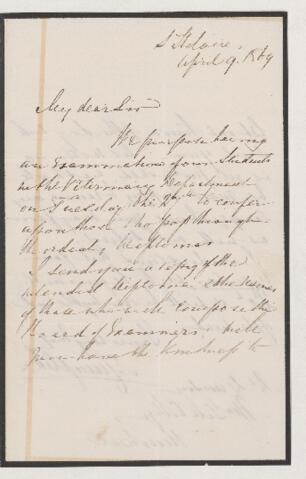 April 9. 1869
My dear Sir
We purpose having
an Examination of our Students
in the Veterinary Department
on Tuesday the to confer
upon those who pass through
the ordeal, Diplomas
I send you a copy of the
intended Diploma & the names
of those who will compose the
Board of Examiners. Will
you have the kindness to